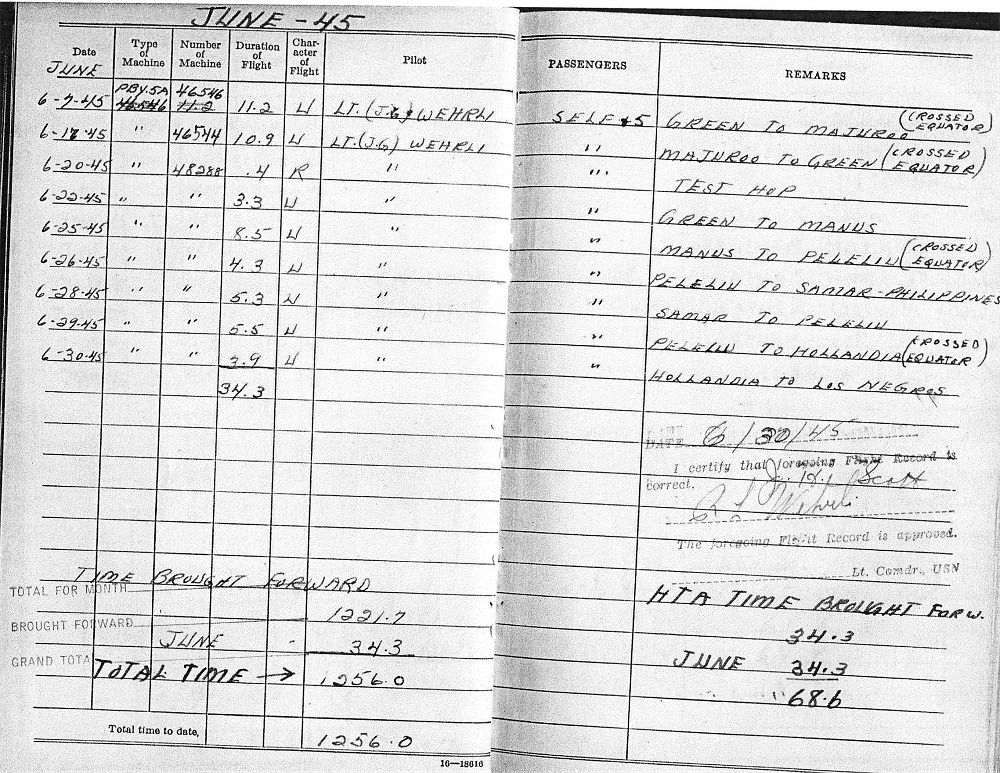 JUNE - 45
Date Type of Machine Number of Machine Duration of Flight Character of Flight Pilot PASSENGERS REMARKS
JUNE
6-7-45 PBY-5A 46546 11.2 U LT.(J.G) WEHRLI SELF +5 GREEN TO MAJUROO (CROSSED EQUATOR)
6-17-45 " 46544 10.9 U LT.(J.G) WEHRLI " MAJUROO TO GREEN (CROSSED EQUATOR)
6-20-45 " 48288 .4 R " " TEST HOP
6-22-45 " " 3.3 U " " GREEN TO MANUS
6-25-45 " " 8.5 U " " MANUS TO PELELIU (CROSSED EQUATOR)
6-26-45 " " 4.3 U " " PELELIU TO SAMAR-PHILIPPINES
6-28-45 " " 5.3 U " " SAMAR TO PELELIU
6-29-45 " " 5.5 U " " PELELIU TO HOLLANDIA (CROSSED EQUATOR)
6-30-45 " " 3.9 U " " HOLLANDIA TO LOS NEGROS
34.3
DATE 6/30/45
I certify that foregoing Flight Record is
correct. Scott
The foregoing Flight Record is approved.
Lt. Comdr., USN
TIME BROUGHT FORWARD
TOTAL FOR MONTH
1221.7
BROUGHT FORWARD
JUNE - 34.3
GRAND TOTAL
TOTAL TIME → 1256.0
Total time to date, 1256.0
16—18616
HTA TIME BROUGHT FORW.
34.3
JUNE 34.3
" 68.6